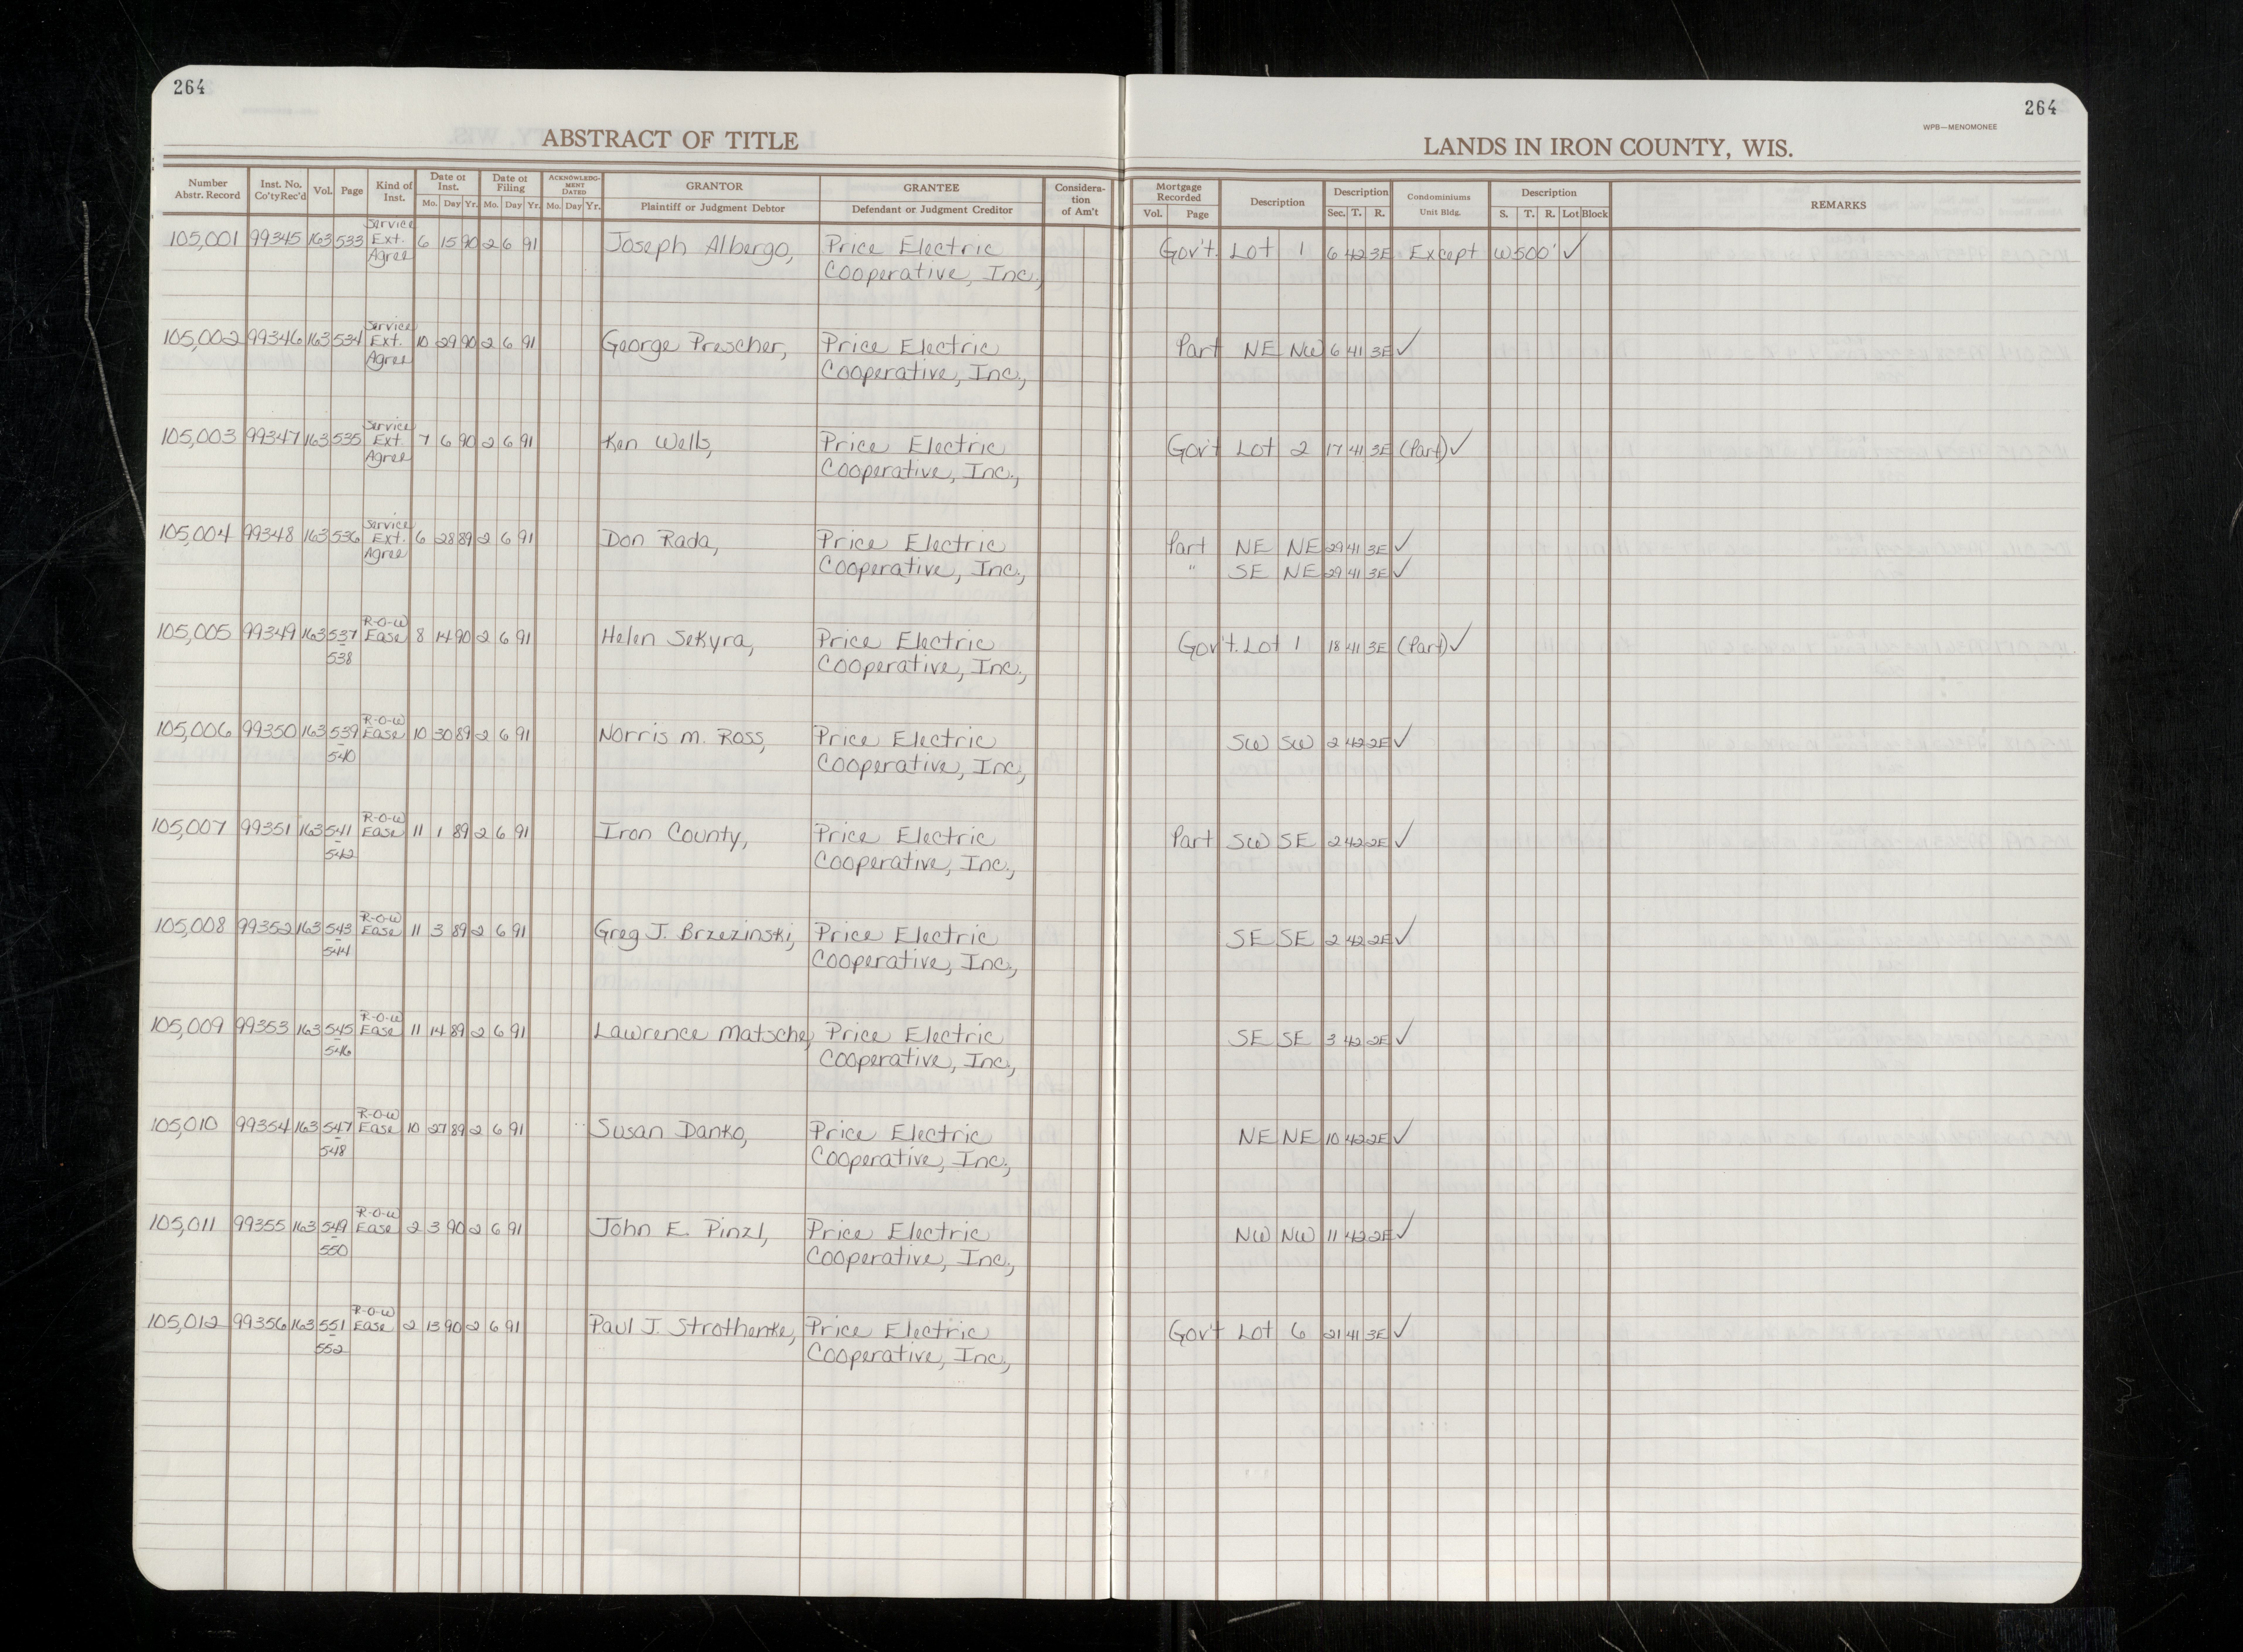 264
264
WPB—MENOMONEE
ABSTRACT OF TITLE
LANDS IN IRON COUNTY, WIS.
Number Abstr. Record | Inst. No. Co'ty Rec'd | Vol. | Page | Kind of Inst. | Date of Inst. Mo. Day Yr. | Date of Filing Mo. Day Yr. | ACKNOWLEDGMENT DATED Mo. Day Yr. | GRANTOR Plaintiff or Judgment Debtor | GRANTEE Defendant or Judgment Creditor | Consideration of Am't | Mortgage Recorded Vol. Page | Description | Description Sec. T. R. | Condominiums Unit Bldg. | Description S. T. R. Lot Block | REMARKS
Service
105,001 99345 163 533 Ext. 6 15 90 2 6 91 Joseph Albergo, Price Electric Gov't. Lot 1 6 42 3E Except W500' ✓
Agree Cooperative, Inc.,
Service
105,002 99346 163 534 Ext. 10 29 90 2 6 91 George Prescher, Price Electric Part NE NW 6 41 3E ✓
Agree Cooperative, Inc.,
Service
105,003 99347 163 535 Ext. 7 6 90 2 6 91 Ken Wells, Price Electric Gov't Lot 2 17 41 3E (Part) ✓
Agree Cooperative, Inc.,
Service
105,004 99348 163 536 Ext. 6 28 89 2 6 91 Don Rada, Price Electric Part NE NE 29 41 3E ✓
Agree Cooperative, Inc., " SE NE 29 41 3E ✓
R-O-W
105,005 99349 163 537 Ease 8 14 90 2 6 91 Helen Sekyra, Price Electric Gov't. Lot 1 18 41 3E (Part) ✓
- 538 Cooperative, Inc.,
R-O-W
105,006 99350 163 539 Ease 10 30 89 2 6 91 Norris M. Ross, Price Electric SW SW 2 42 2E ✓
- 540 Cooperative, Inc.,
R-O-W
105,007 99351 163 541 Ease 11 1 89 2 6 91 Iron County, Price Electric Part SW SE 2 42 2E ✓
- 542 Cooperative, Inc.,
R-O-W
105,008 99352 163 543 Ease 11 3 89 2 6 91 Greg J. Brzezinski, Price Electric SE SE 2 42 2E ✓
- 544 Cooperative, Inc.,
R-O-W
105,009 99353 163 545 Ease 11 14 89 2 6 91 Lawrence Matsche, Price Electric SE SE 3 42 2E ✓
- 546 Cooperative, Inc.,
R-O-W
105,010 99354 163 547 Ease 10 27 89 2 6 91 Susan Danko, Price Electric NE NE 10 42 2E ✓
- 548 Cooperative, Inc.,
R-O-W
105,011 99355 163 549 Ease 2 3 90 2 6 91 John E. Pinzl, Price Electric NW NW 11 42 2E ✓
- 550 Cooperative, Inc.,
R-O-W
105,012 99356 163 551 Ease 2 13 90 2 6 91 Paul J. Strothenke, Price Electric Gov't Lot 6 21 41 3E ✓
- 552 Cooperative, Inc.,